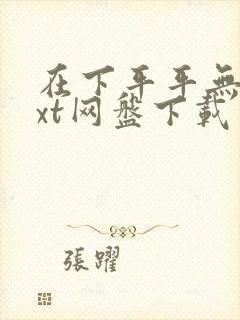 在下平平無
xt网盘下載
張躍